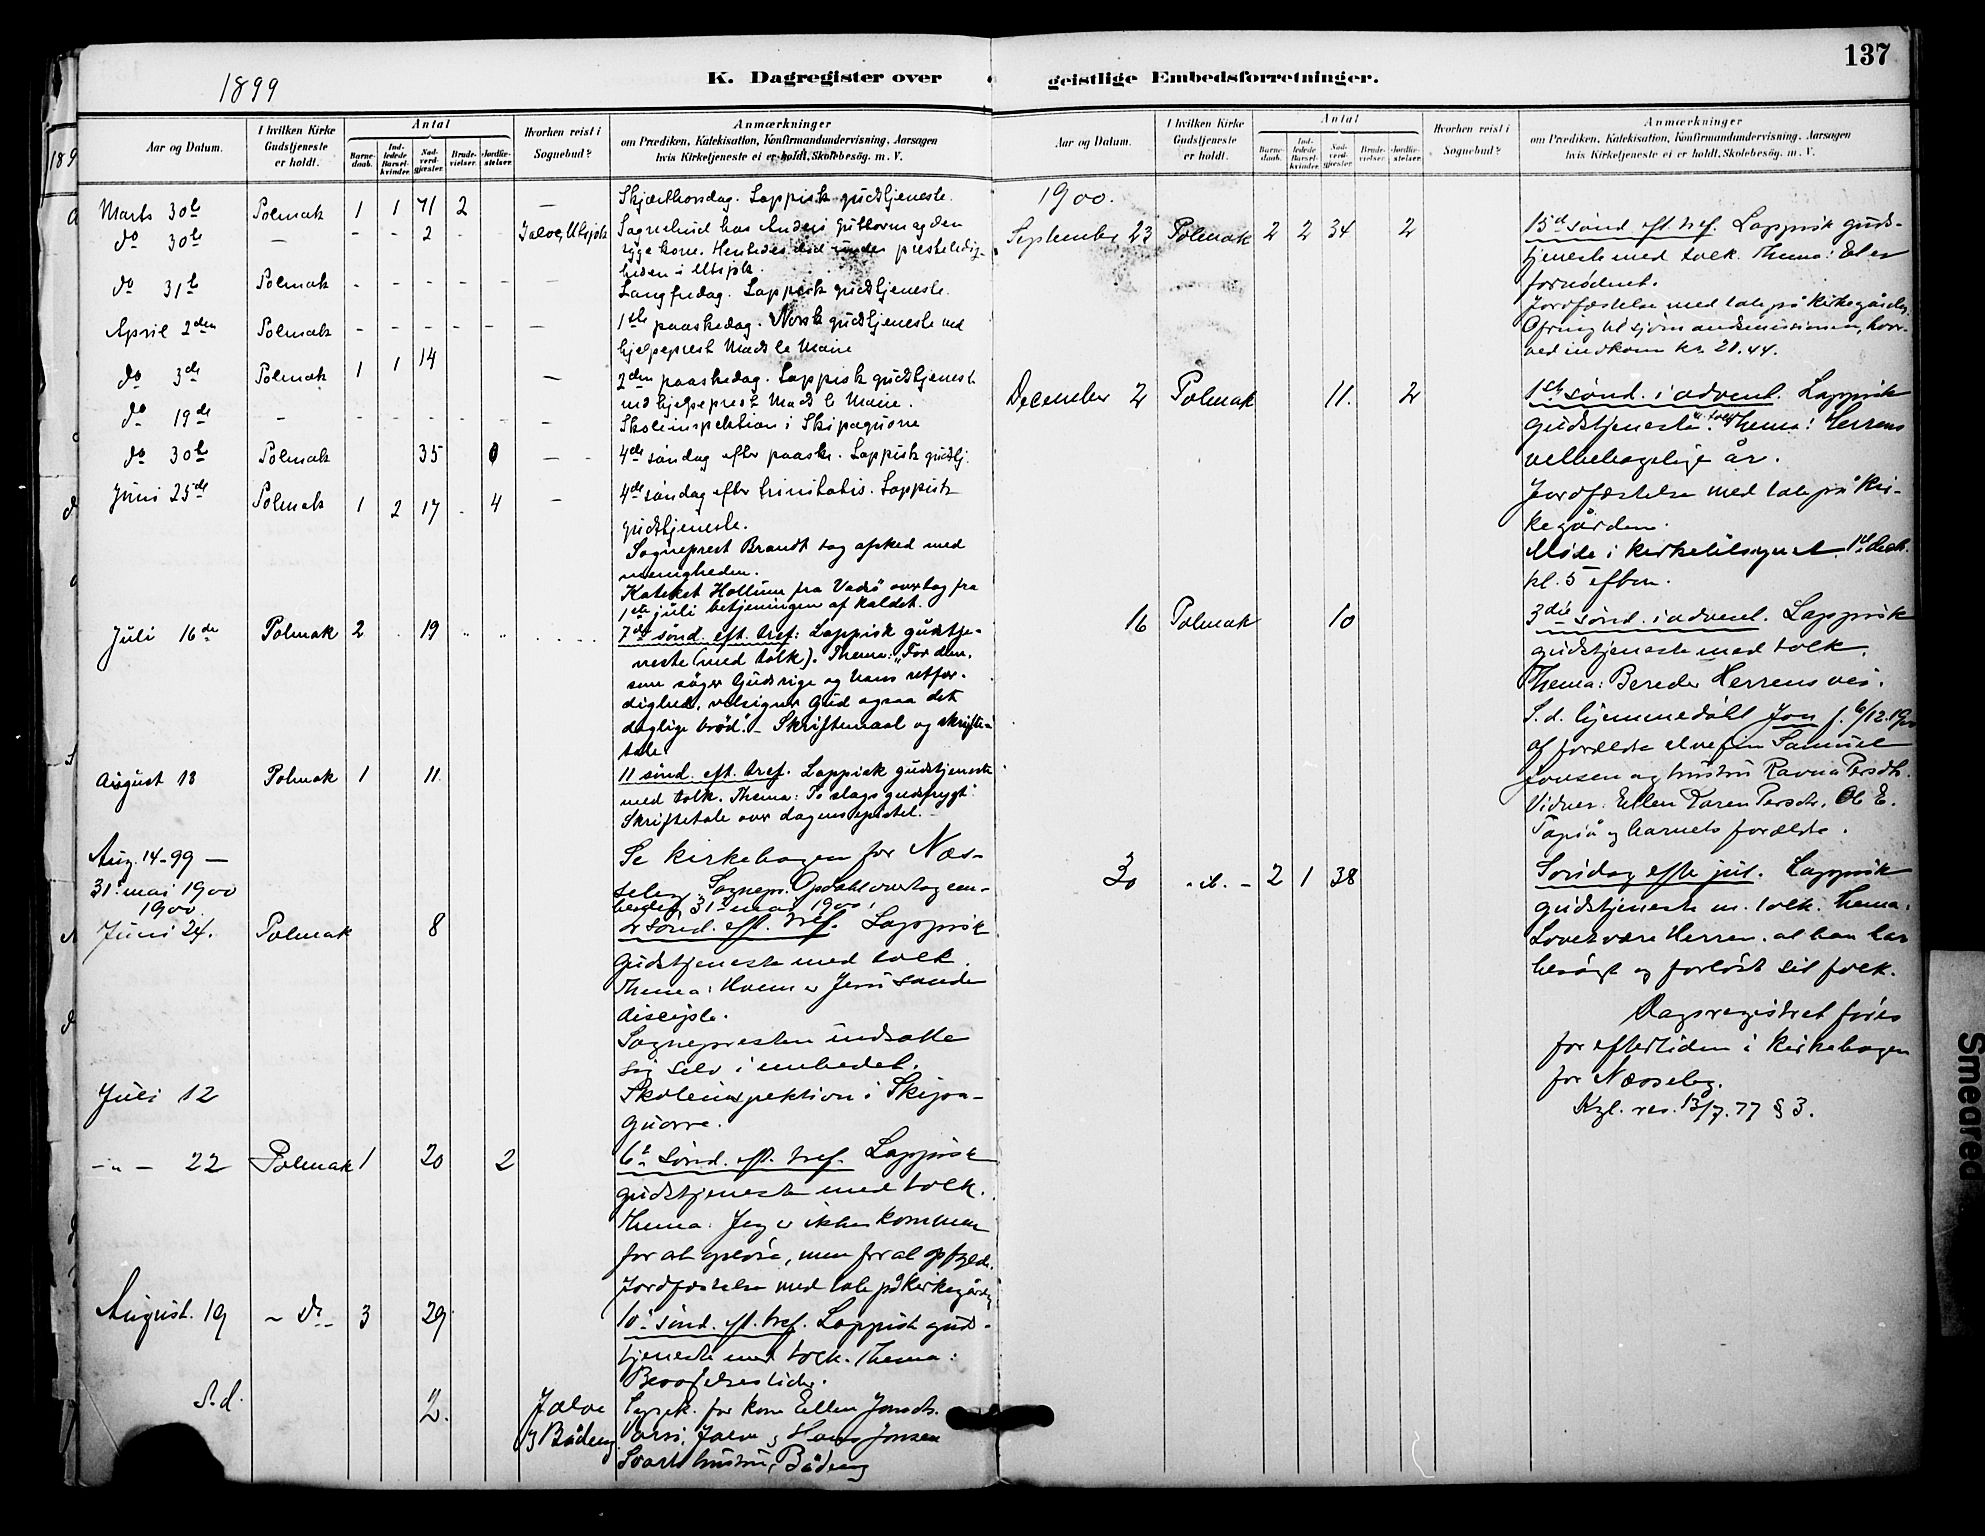 137
1899
K. Dagregister over geistlige Embedsforretninger.
Aar og Datum.
I hvilken Kirke Gudstjeneste er holdt.
Antal
Barne-daab.
Ind-ledede Barsel-kvinder.
Nad-verd-gjæster.
Brude-vielser.
Jordfæ-stelser.
Hvorhen reist i Sognebud?
Anmærkninger
om Prædiken, Katekisation, Konfirmandundervisning, Aarsagen
hvis Kirketjeneste ei er holdt, Skolebesög. m. V.
189
Marts 30te Polmak 1 1 71 2 — Skjærthorsdag. Lappisk gudstjeneste.
do 30te — - - 2 Jalve, Utsjok Sognebud hos Anders Guttorm og den
syge kone. Hentedes did under presteledig-
heden i Utsjok.
do 31te Polmak - - - - - - Langfredag. Lappisk gudstjeneste.
April 2den Polmak - - - - - — 1ste paaskedag. Norsk gudstjeneste ved
hjelpeprest Mads le Maire
do 3die Polmak 1 1 14 — 2den paaskedag. Lappisk gudstjeneste
ved hjelpeprest Mads le Maire.
do 19de - - - - - - - Skoleinspektion i Skipagurra
do 30te Polmak 35 — 4de søndag efter paaske. Lappisk gudstj.
Juni 25de Polmak 1 2 17 . 4 — 4de søndag efter trinitatis. Lappisk
gudstjeneste.
Sogneprest Brandt tog afsked med
menigheden.
Kateket Hollum fra Vadsø overtog fra
1ste juli betjeningen af kaldet.
Juli 16de Polmak 2 . 19 7de sønd. eft. tref: Lappisk gudstje-
neste (med tolk). Thema: "For dem,
som søger Guds rige og hans retfær-
dighed, velsigner Gud ogsaa det
daglige brød". – Skriftemaal og skrifte-
tale
August 13 Polmak 1 11 11 sønd. eft. tref. Lappisk gudstjeneste
med tolk. Thema: To slags gudsfrygt.
Skriftetale over dagens epistel.
Aug. 14-99 — Se kirkebogen for Næs-
31. mai 1900 seby. Sognepr. Opdahl overtog em-
bedet 31te mai 1900.
1900
Juni 24. Polmak 8 2 sønd. eft. tref. Lappisk
gudstjeneste med tolk.
Thema: Hvem er Jesu sande
disciple.
Sognepresten indsatte
sig selv i embedet.
Juli 12 Skoleinspektion i Skipa-
gurra.
-"- 22 Polmak 1 20 2 6te sønd. eft. tref. Lappisk
gudstjeneste med tolk.
Thema: Jeg er ikke kommen
for at opløse, men for at opfylde.
Jordfæstelse med tale på kirkegården
August. 19 - do - 3 29 10de sønd. eft. tref. Lappisk guds-
tjeneste med tolk. Thema:
Besøgelsestider.
S. d. 2. Jalve Sognek. for kone Ellen Jonsdt.
g Båteng Jalve g Hans Jonsen
hustru, Båteng
1900.
September 23 Polmak 2 2 34 2 15de sønd. eft. tref. Lappisk guds-
tjeneste med tolk. Thema: Et er
fornødent.
Jordfæstelse med tale på kirkegården.
Ofring til sjømandsmissionen, hvor-
ved indkom kr. 21.44.
December 2 Polmak 11. 2 1ste sønd. i advent. Lappisk
gudstjeneste m. tolk. Thema: Herrens
velbehagelige år.
Jordfæstelse med tale på kir-
kegården.
Møde i kirketilsynet 1ste decb.
kl. 5 efterm.
16 Polmak 10 3die sønd. i advent. Lappisk
gudstjeneste med tolk.
Thema: Bereder Herrens vei.
S. d. hjemmedøbt Jon f. 6/12.1900
af forældre Samuel
Jonsen og hustru Ravna Persdt.
Vidner: Ellen Karen Persdt., Ole E.
Tapiå g barnets forældre.
30 - it. - 2 1 38 Søndag efter jul. Lappisk
gudstjeneste m. tolk. Thema:
Lovet være Herren, at han har
besøgt og forløst sit folk.
Dagsregistret føres
for eftertiden i kirkebogen
for Næsseby.
Kgl. res. 13/7. 77 § 3.
Smeared